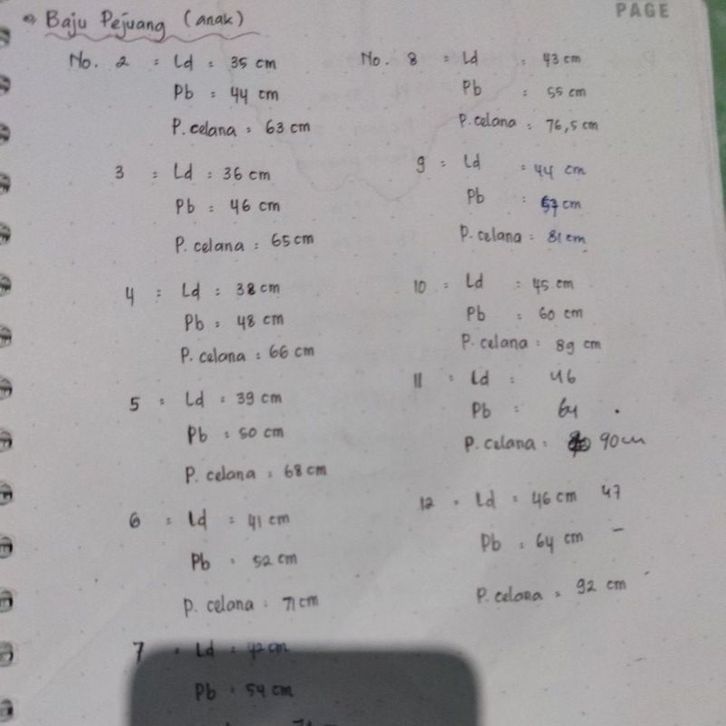 PAGE
Baju Pejuang (anak)
No. 2 : Ld : 35 cm
Pb : 44 cm
P. celana : 63 cm
3 : Ld : 36 cm
Pb : 46 cm
P. celana : 65 cm
4 : Ld : 38 cm
Pb : 48 cm
P. celana : 66 cm
5 : Ld : 39 cm
Pb : 50 cm
P. celana : 68 cm
6 : Ld : 41 cm
Pb : 52 cm
P. celana : 71 cm
7 : Ld : 42 cm
Pb : 54 cm
No. 8 : Ld : 43 cm
Pb : 55 cm
P. celana : 76,5 cm
9 : Ld : 44 cm
Pb : 57 cm
P. celana : 81 cm
10 : Ld : 45 cm
Pb : 60 cm
P. celana : 89 cm
11 : Ld : 46
Pb : 64 .
P. celana : 90 cm
12 : Ld : 46 cm 47
Pb : 64 cm –
P. celana : 92 cm